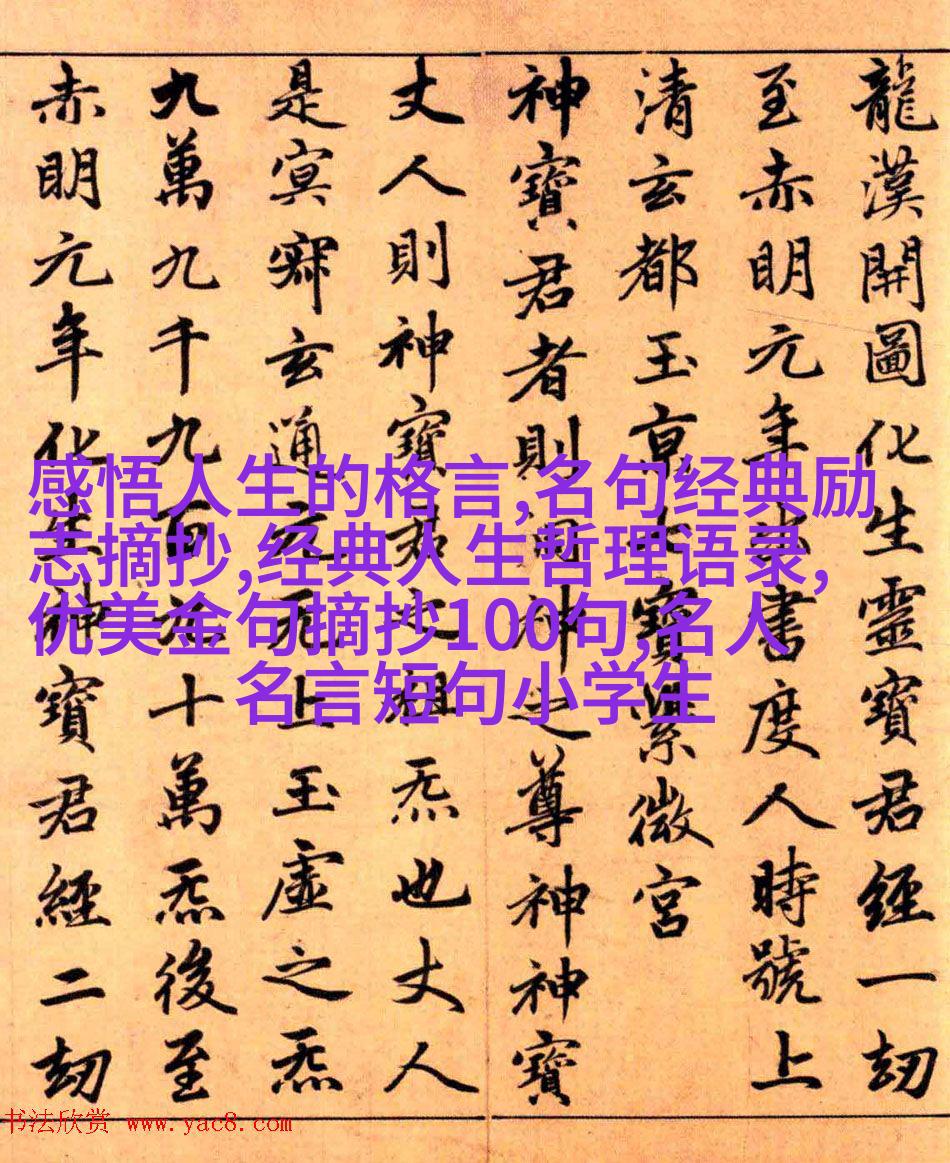 龍漢開圖化生靈寶君經一劫
至赤明元年出書度人時號上
清玄都玉京七寶紫微宮
神寶君者則洞神之尊神神寶
丈人則神寶君之祖炁也丈人
是冥寂玄通元无上玉虛之炁
九萬九千九百九十萬炁後至
赤明元年化生神寶君經二劫
感悟人生的格言,名句经典励
志摘抄,经典人生哲理语录,
优美金句摘抄100句,名人
名言短句小学生
书法欣赏 www.yac8.com